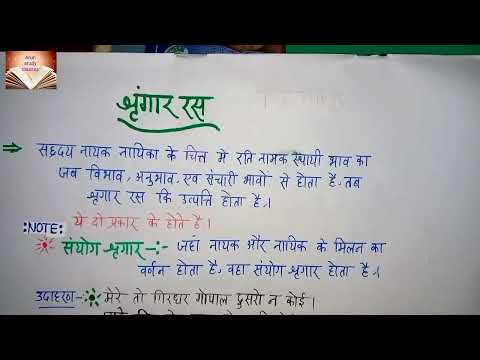 शृंगार रस
⇒ सहृदय नायक नायिका के चित्त में रति नामक स्थायी भाव का
जब विभाव, अनुभाव, एव संचारी भावों से होता है, तब
शृगार रस कि उत्पत्ति होता है।
:NOTE: ये दो प्रकार के होते है।
संयोग शृगार -:- जहां नायक और नायिक के मिलन का
वर्नन होता है, वहा संयोग शृगार होता है।
उदाहरण -: मेरे तो गिरधर गोपाल दुसरो न कोई।